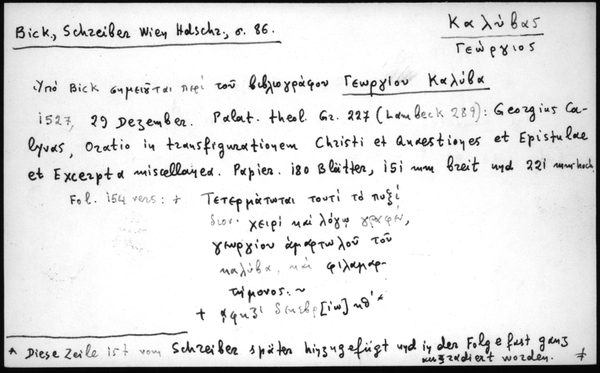 Bick, Schreiber Wien Hdschr., σ. 86.
Καλύβας
Γεώργιος
Ὑπό Bick σημειοῦται περί τοῦ βιβλιογράφου Γεωργίου Καλύβα
1527, 29 Dezember. Palat. theol. Gr. 227 (Lambeck 289): Georgius Ca-
lyvas, Oratio in transfigurationem Christi et Quaestiones et Epistulae
et Excerpta miscellanea. Papier. 180 Blätter, 151 mm breit und 221 mm hoch.
Fol. 154 vers: + Τετερμάτωται τουτί τό πυξί
διον· χειρί καί λόγῳ
γεωργίου ἁμαρτωλοῦ τοῦ
καλύβα, καί φιλαμαρ-
τήμονος: ~
+ ͵αφκζ' δικεβρ[ίω] κθ' *
* Diese Zeile ist vom Schreiber später hinzugefügt und in der Folge fast ganz
ausradiert worden. +